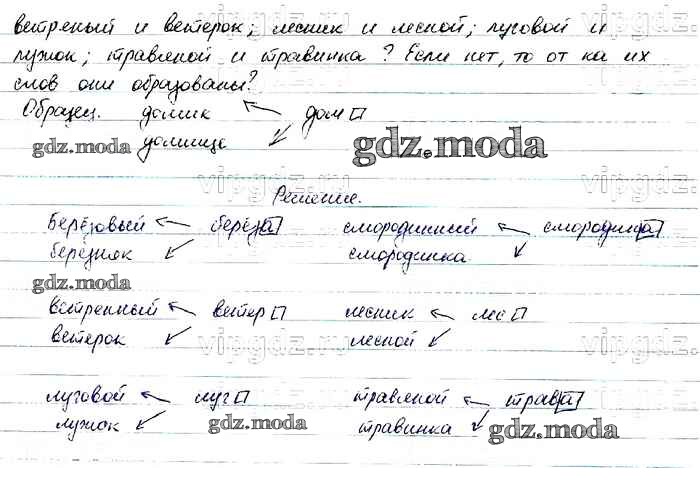 ветреный и ветерок; лесник и лесной; луговой и
лужок; травяной и травинка? Если нет, то от ка их
слов они образованы?
Образец. домик ← дом
gdz.moda домище gdz.moda
vipgdz.ru vipgdz.ru
Решение.
берёзовый ← берёза смородинный ← смородина
березняк смородинка
gdz.moda
ветренный ← ветер лесник ← лес
ветерок лесной
vipgdz.ru vipgdz.ru
луговой ← луг травяной ← трава
лужок gdz.moda травинка gdz.moda